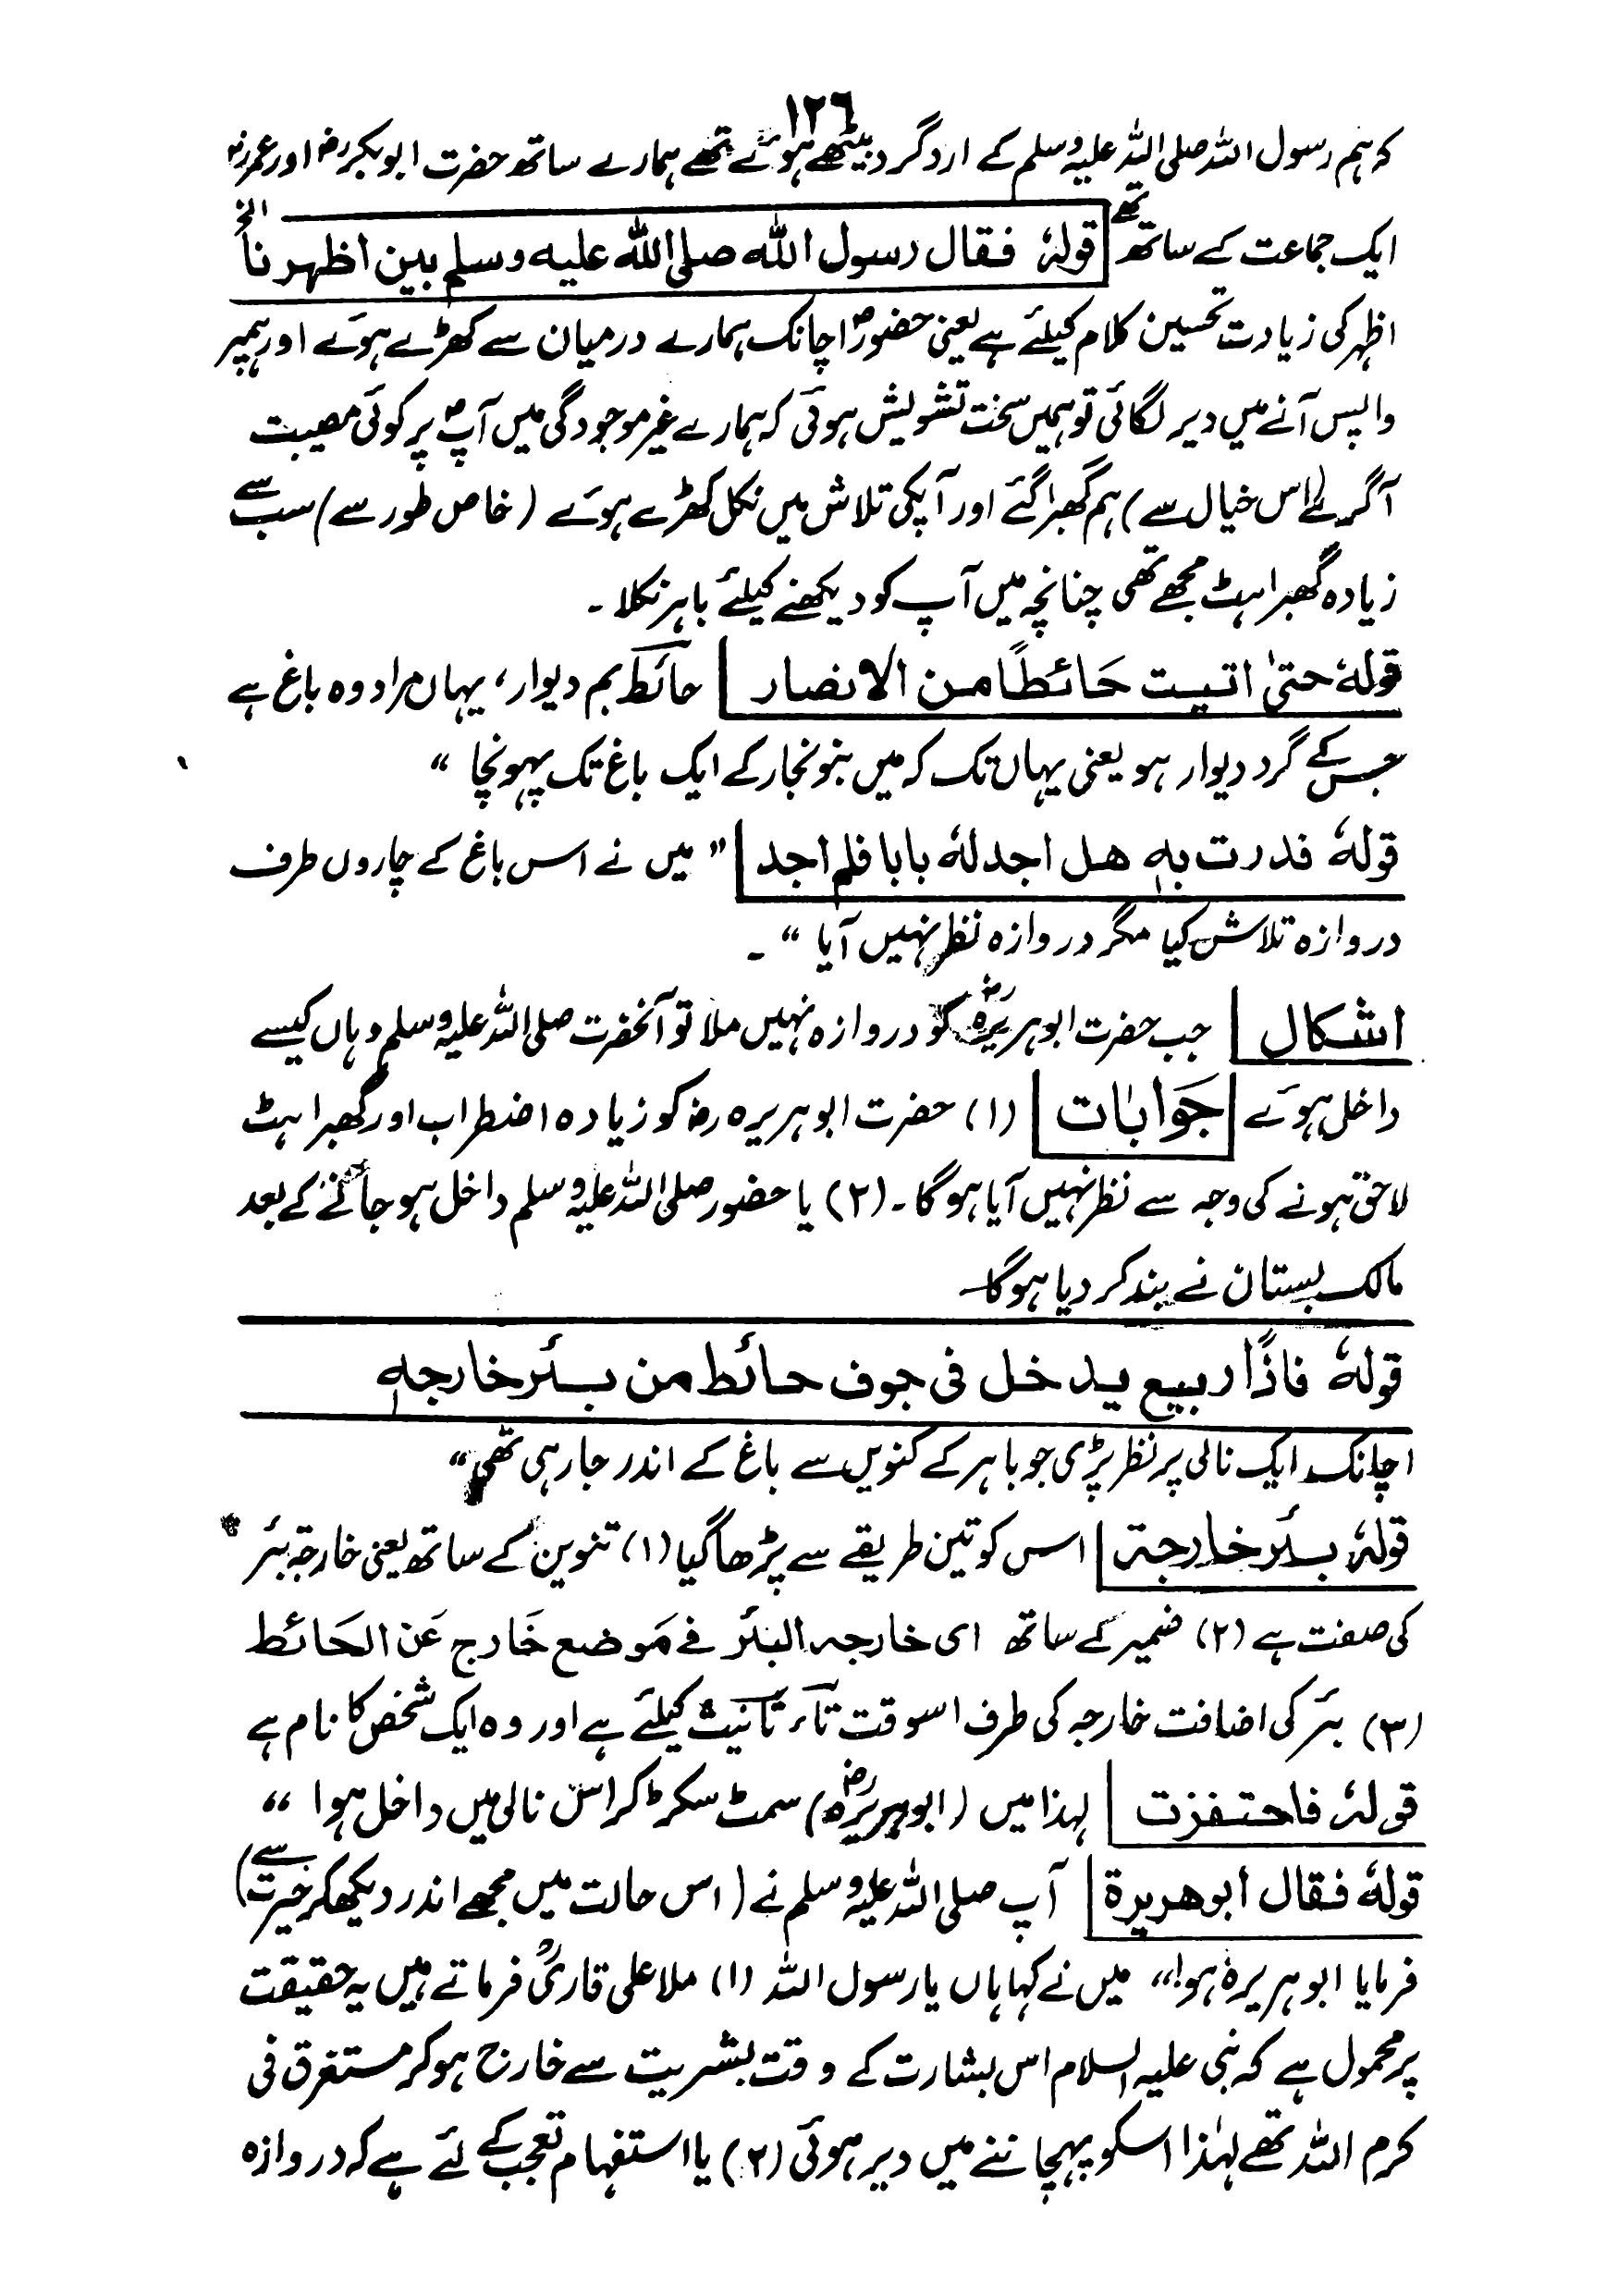 ۱۲۶
کہ ہم رسول اللہ صلی اللہ علیہ وسلم کے ارد گرد بیٹھے ہوئے تھے ہمارے ساتھ حضرت ابوبکر رضؓ اور عمر رضؓ
ایک جماعت کے ساتھ تھے قولہٗ فقال رسول اللہ صلی اللہ علیہ وسلم بین اظہرنا الخ
اظہر کی زیادت تحسین کلام کیلئے ہے یعنی حضورؐ اچانک ہمارے درمیان سے کھڑے ہوئے اور پھر
واپس آنے میں دیر لگائی تو ہمیں سخت تشویش ہوئی کہ ہمارے غیر موجودگی میں آپؐ پر کوئی مصیبت
آگرے (اس خیال سے) ہم گھبرا گئے اور آپکی تلاش میں نکل کھڑے ہوئے (خاص طور سے) سب سے
زیادہ گھبراہٹ مجھے تھی چنانچہ میں آپ کو دیکھنے کیلئے باہر نکلا ۔
قولہٗ حتیٰ اتیت حَائطًا من الانصار حائط بم دیوار، یہاں مراد وہ باغ ہے
جس کے گرد دیوار ہو یعنی یہاں تک کہ میں بنو نجار کے ایک باغ تک پہونچا “
قولہٗ فدرت بہٖ ھل اجد لہٗ بابا فلم اجد ” میں نے اس باغ کے چاروں طرف
دروازہ تلاش کیا مگر دروازہ نظر نہیں آیا “ ۔
اشکال جب حضرت ابوہریرہؓ کو دروازہ نہیں ملا تو آنحضرت صلی اللہ علیہ وسلم وہاں کیسے
داخل ہوئے جَوابَات (۱) حضرت ابوہریرہ رضؓ کو زیادہ اضطراب اور گھبراہٹ
لاحق ہونے کی وجہ سے نظر نہیں آیا ہوگا ۔ (۲) یا حضور صلی اللہ علیہ وسلم داخل ہو جانے کے بعد
مالک بستان نے بند کر دیا ہوگا۔
قولہٗ فاذًا ربیع یدخل فی جوف حائط من بئر خارجہٖ
اچانک ایک نالی پر نظر پڑی جو باہر کے کنویں سے باغ کے اندر جا رہی تھی“
قولہٗ بئر خارجة اس کو تین طریقے سے پڑھا گیا (۱) تنوین کے ساتھ یعنی خارجۃ بئر
کی صفت ہے (۲) ضمیر کے ساتھ ای خارجہ البئر فے مَوضع خَارج عَن الحَائط
(۳) بئر کی اضافت خارجہ کی طرف اسوقت تاء تانیث کیلئے ہے اور وہ ایک شخص کا نام ہے
قولہٗ فاحتفزت لہذا میں (ابوہریرہؓ) سمٹ سکڑ کر اس نالی میں داخل ہوا “
قولہٗ فقال ابوھریرة آپ صلی اللہ علیہ وسلم نے (اس حالت میں مجھے اندر دیکھ کر حیرت سے)
فرمایا ابوہریرہ ہو!“ میں نے کہا ہاں یا رسول اللہ (۱) ملا علی قاریؒ فرماتے ہیں یہ حقیقت
پر محمول ہے کہ نبی علیہ السلام اس بشارت کے وقت بشریت سے خارج ہو کر مستغرق فی
کرم اللہ تھے لہٰذا اسکو پہچاننے میں دیر ہوئی (۲) یا استفہام تعجب کے لئے ہے کہ دروازہ